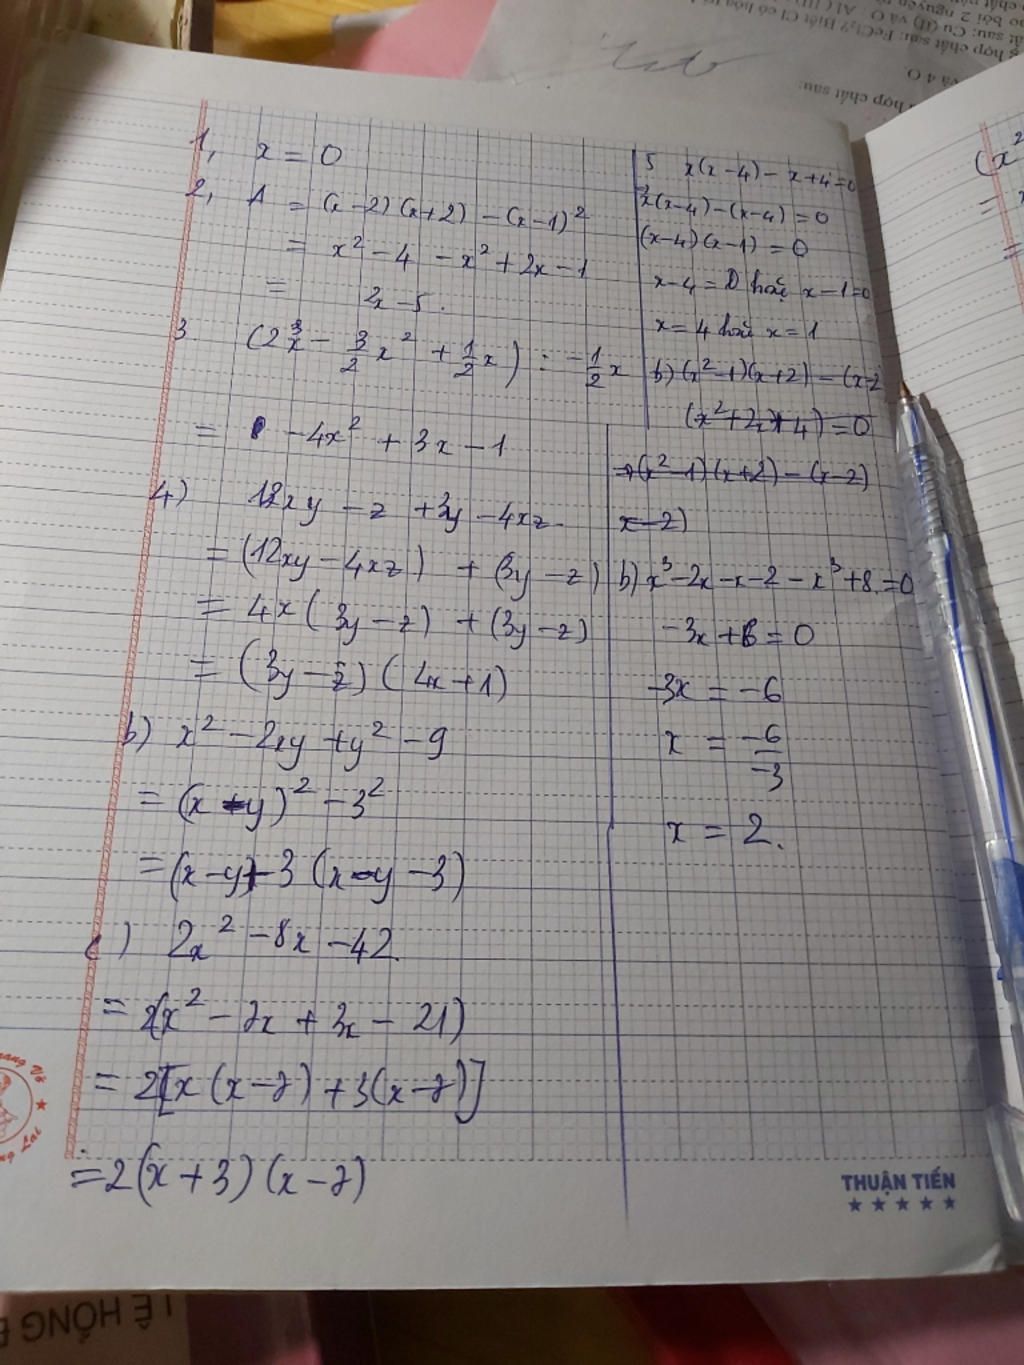 1, x = 0
2, A = (x-2)(x+2) - (x-1)²
= x² - 4 - x² + 2x - 1
= 2x - 5.
3. (2x³ - 3/2 x² + 1/2 x) : -1/2 x
= -4x² + 3x - 1
4) 12xy - z + 3y - 4xz
= (12xy - 4xz) + (3y - z)
= 4x(3y - z) + (3y - z)
= (3y - z)(4x + 1)
b) x² - 2xy + y² - 9
= (x - y)² - 3²
= (x - y) + 3 (x - y - 3)
c) 2x² - 8x - 42.
= 2(x² - 7x + 3x - 21)
= 2[x(x - 7) + 3(x - 7)]
= 2(x + 3)(x - 7)
5 x(x-4) - x + 4 = 0
x(x-4) - (x-4) = 0
(x-4)(x-1) = 0
x - 4 = 0 hoặc x - 1 = 0
x = 4 hoặc x = 1
b) (x² - 1)(x+2) - (x-2)
(x² + 2x + 4) = 0
→ (x² - 1)(x+2) - (x-2)
x - 2)
b) x³ - 2x - x - 2 - x³ + 8 = 0
-3x + 6 = 0
-3x = -6
x = -6/-3
x = 2.
THUẬN TIẾN
LÊ HỒNG
hợp chất sau:
và 4 O.